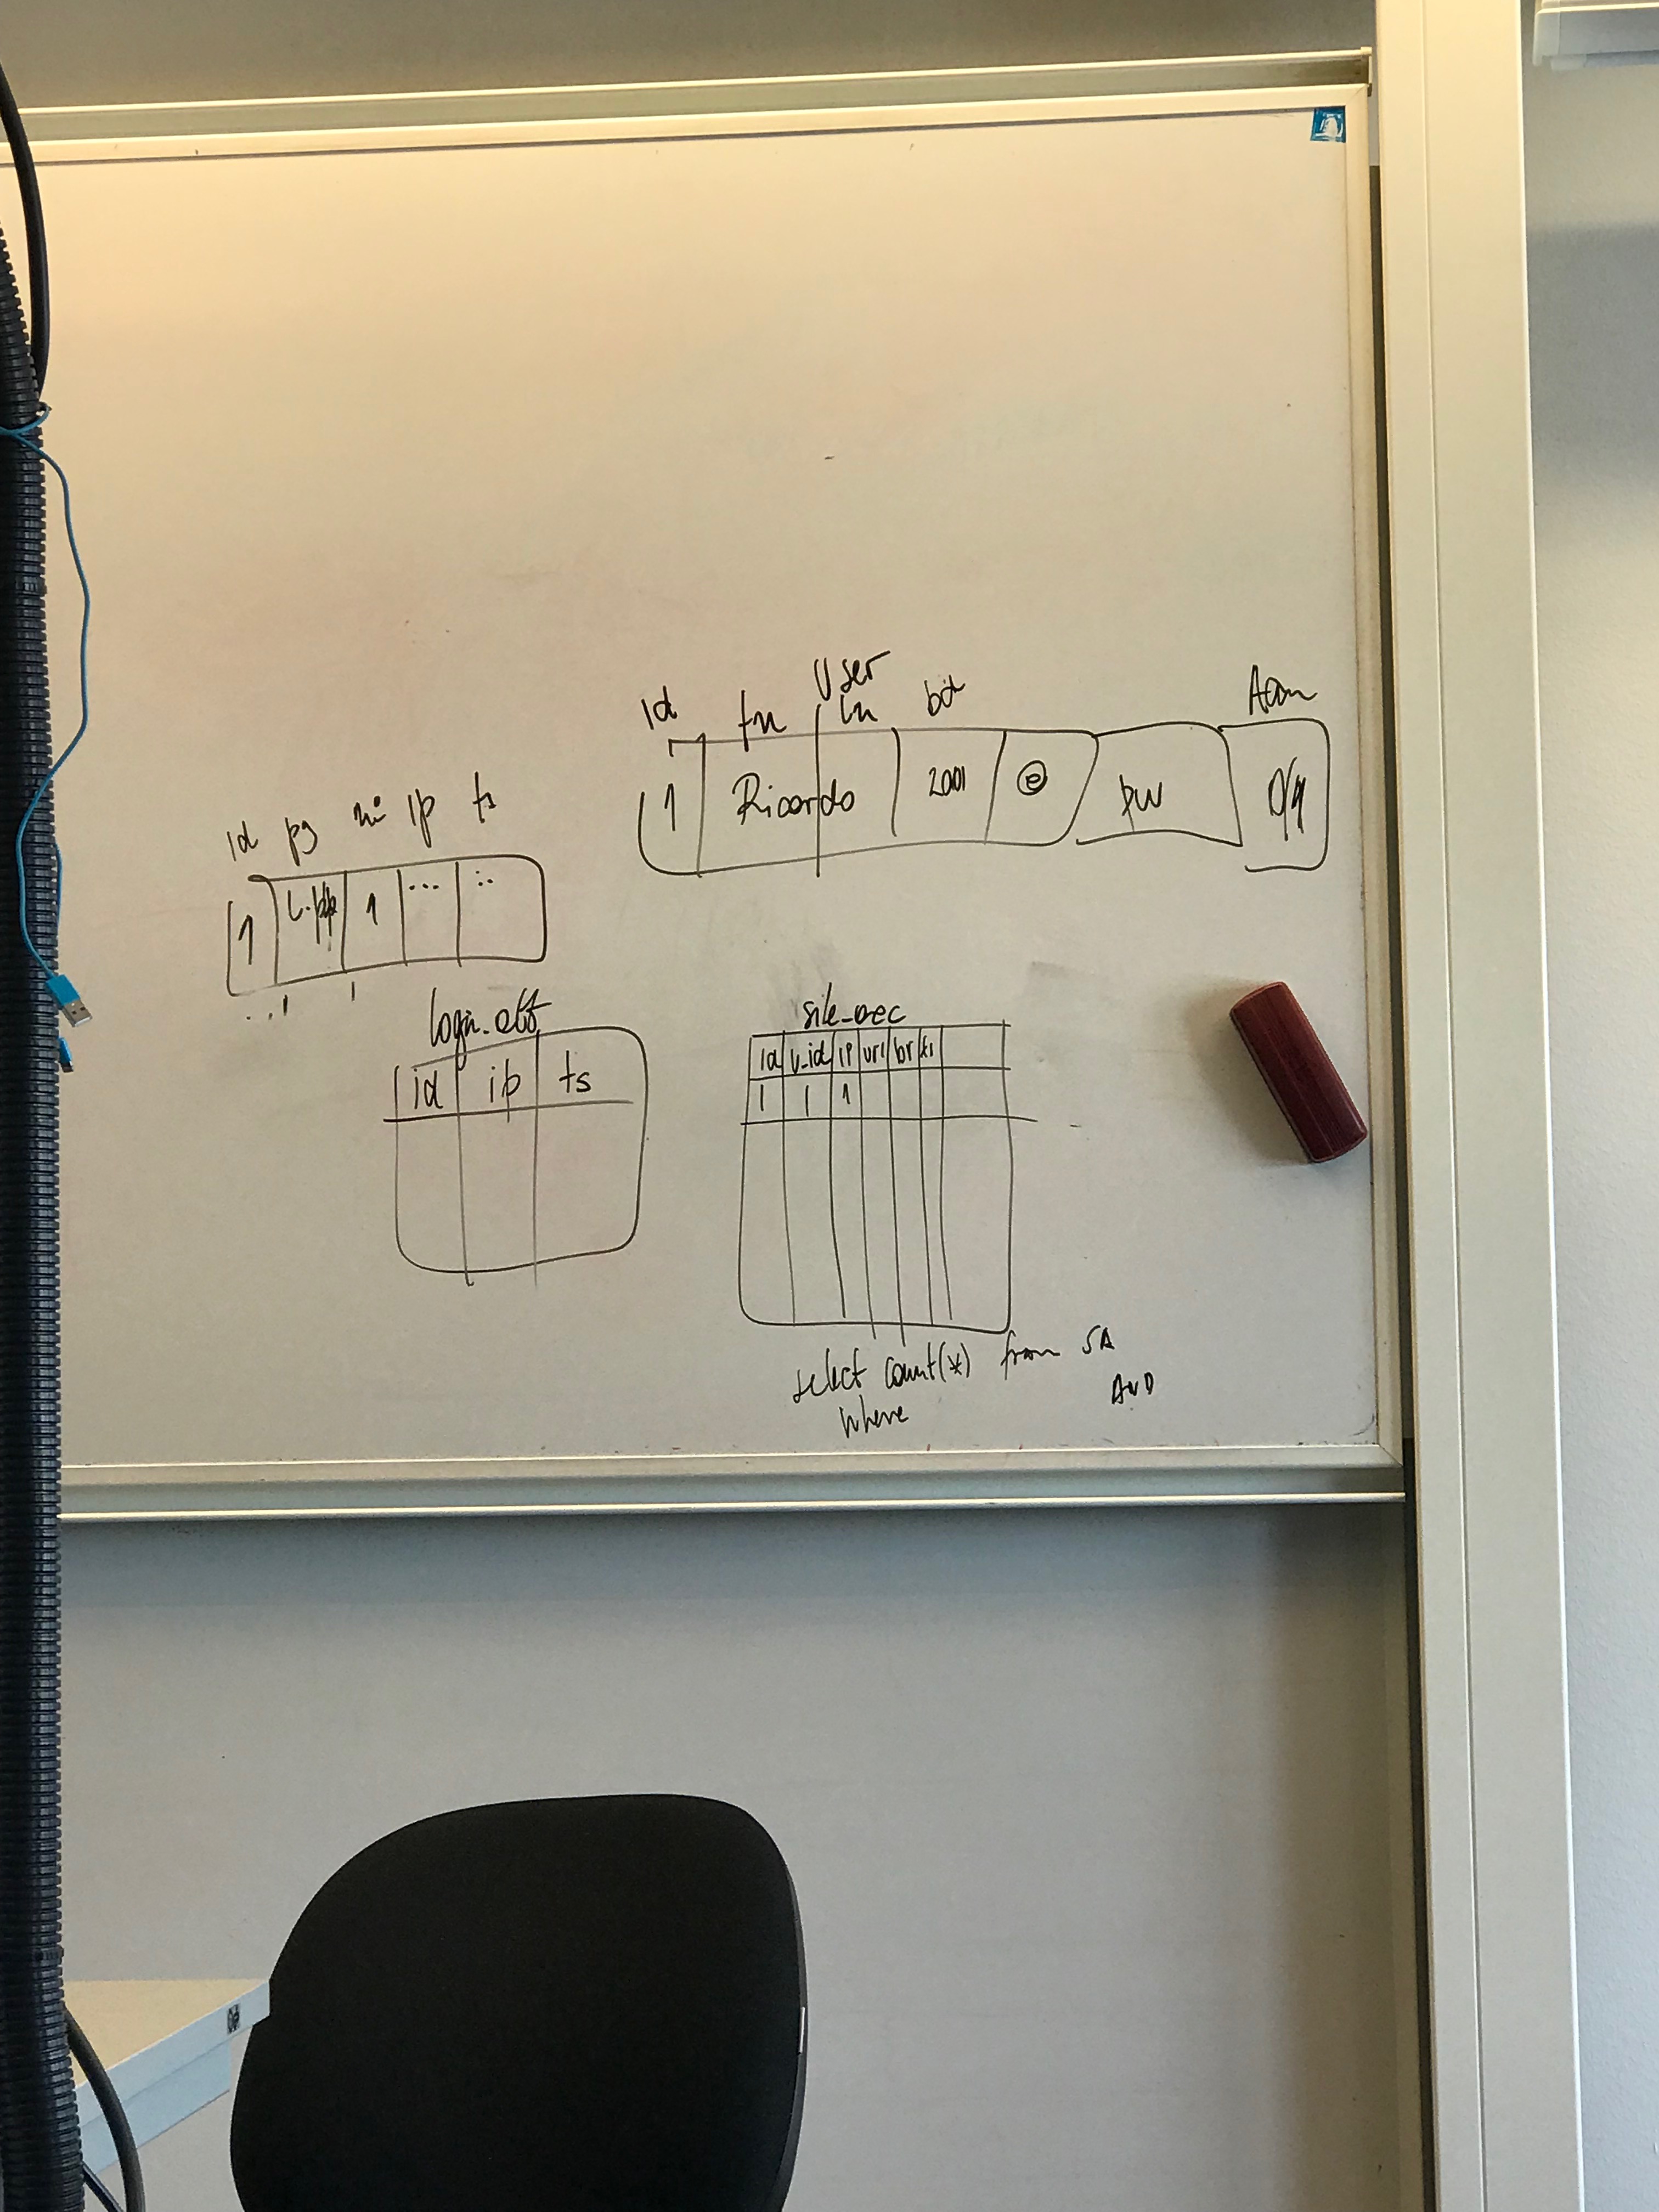 User
id fn ln bd
1 Ricardo 2001 @ pw 0/1
id pg ip ts
1 1 ... ...
login_att
id ip ts
site_acc
id u_id ip url br ts
1 1 1
select count(*) from SA
where AND